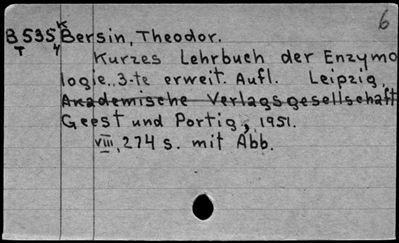 6
K
B535 Bersin, Theodor.
T 4
Kurzes Lehrbuch der Enzymo
logie..3-te erweit. Aufl. Leipzig,
Akademische Verlagsgesellschaft
Geest und Portig, 1951.
VIII, 274 s. mit Abb.